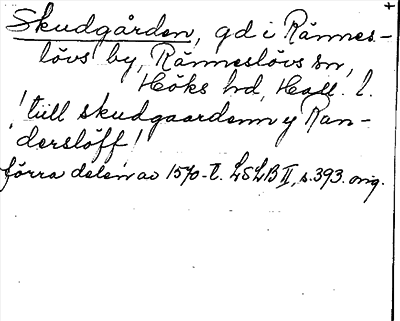 Skudgården, gd i Ränneslövs
lövs by, Ränneslövs sn,
Höks hd, Hall. l.
! till skudgaardenn y Ran-
derslöff!
förra delen av 1570-t. LSLB II, s. 393. orig.